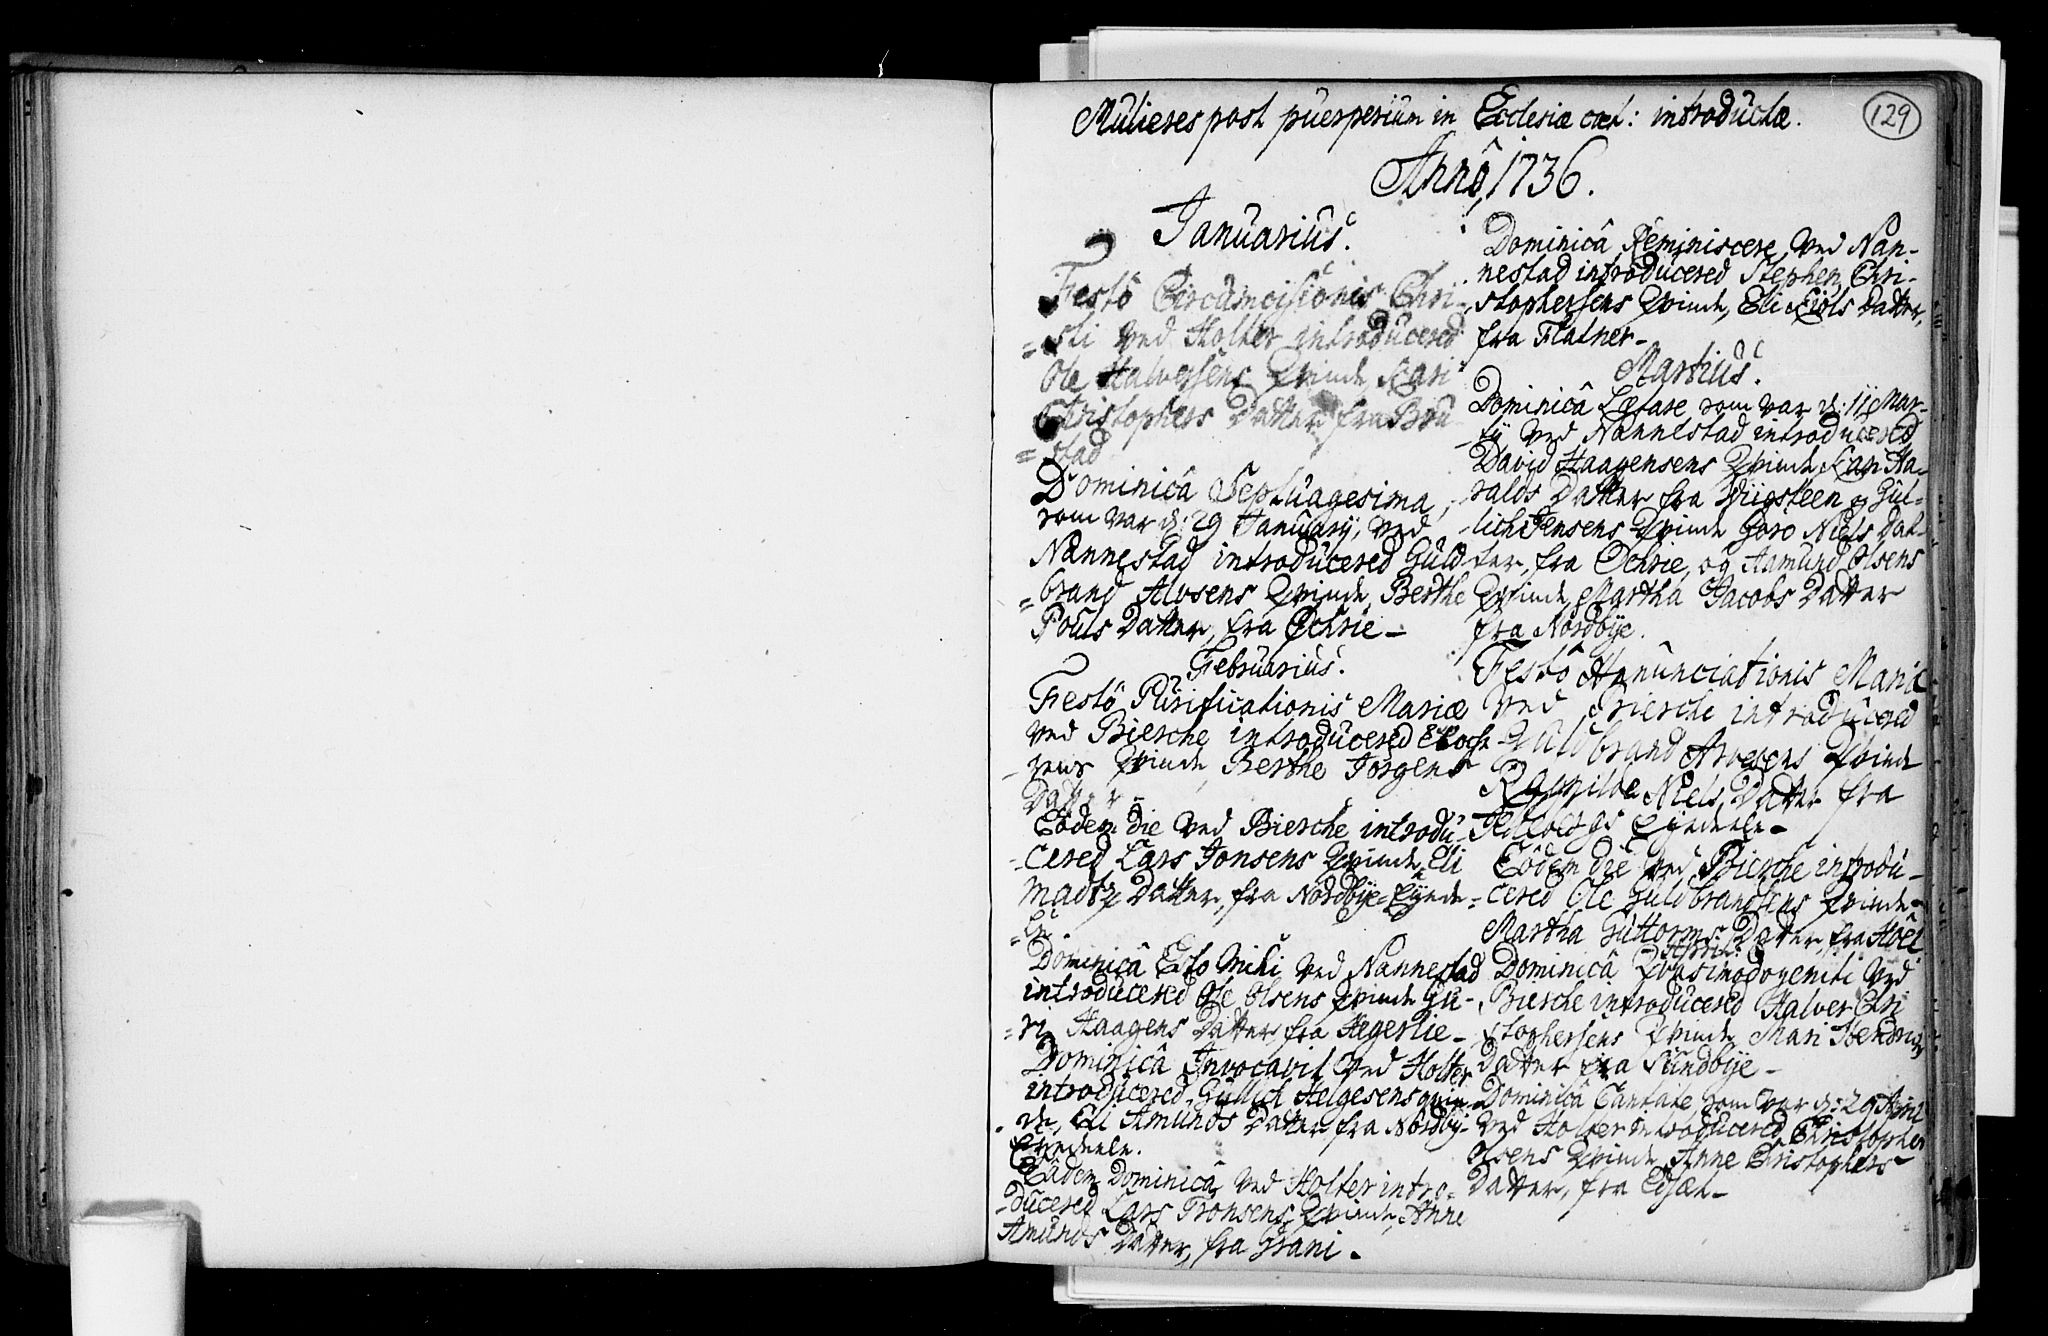 Mulieres post puerperium in Ecclesiæ cæt: introductæ.
129
Annô 1736.
Januarius.
Festô Circumcisionis Chri-
=sti ved Holter introducered
Ole Halversens Qvinde, Kari
Christophers Datter fra Bru-
=stad
Dominicâ Septuagesima,
som var d: 29 January, ved
Nannestad introducered Guld
=brand Alvsens Qvinde, Berthe
Pouls Datter, fra Øchrie-
Februarius.
Festô Purificationis Mariæ
ved Biersche introducered
-sens Qvinde, Berthe Jorgens
Datter-
Eôdem die ved Biersche introdu-
-cered Lars Jonsens Qvinde, Eli
Madtz Datter, fra Nordbÿe-Eÿede-
=le.
Dominicâ Esto Mihi ved Nannestad
introducered Ole Olsens Qvinde Gu-
=ri Haagens Datter fra Hegerlie-
Dominicâ Invocavit ved Holter
introducered Gullich Helgesens qvin-
de, Eli Amunds Datter fra Nordbÿ-
Eÿedeele.
Eâdem Dominicâ ved Holter intro-
-ducered Lars Tronsens Qvinde, Anne
Amunds Datter, fra Grani-
Dominicâ Reminiscere ved Nan-
nestad introducered Stephen Chri-
stophersens Qvinde, Eli Kiøls Datter,
fra Flatner-
Martius.
Dominicâ Lætare som var d: 11 Mar-
-tÿ ved Nannestad introducered
David Haagensens Qvinde Kari Ha-
ralds Datter fra Wiigsteen og Gul-
-lich Jensens Qvinde Goro Niels Dat-
ter, fra Øchrie, og Aamund Olsens
Qvinde Martha Jacobs Datter
fra Nordbÿe.
Festô Annunciationis Mariæ
ved Biersche introducered
Guldbrand Arvesens Qvinde
Ragnilde Niels Datter fra
Eÿedeele-
Eôdem die ved Biersche introdu-
=cered Ole Guldbrandsens Qvinde-
Martha Guttorms Datter, fra Hoel
April:
Dominicâ Qvasimodogeniti ved
Biersche introducered Halver Chri
stophersens Qvinde Mari Hendrichs
Datter fra Sundbÿe-
Dominicâ Cantate som var d: 29 April
ved Holter introducered Christopher
Olsens Qvinde Anne Christophers-
Datter, fra